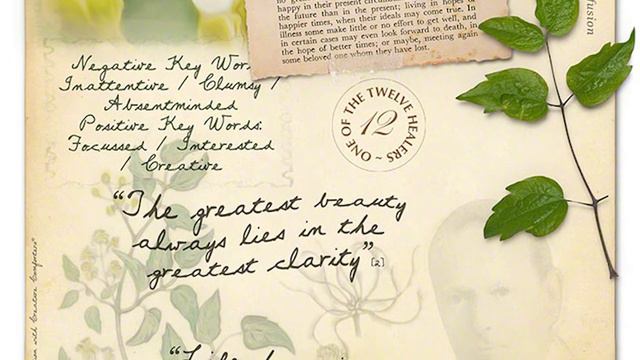 happy in their present circum
the future than in the present; living in hopes of
happier times, when their ideals may come true. In
illness some make little or no effort to get well, and
in certain cases may even look forward to death, in
the hope of better times; or maybe, meeting again
some beloved one whom they have lost.
fusion
Negative Key Wor
Inattentive / Clumsy /
Absentminded
Positive Key Words:
Focussed / Interested
/ Creative
ONE OF THE TWELVE HEALERS ~
12
"The greatest beauty
always lies in the
greatest clarity" [2]
with Creative Computers